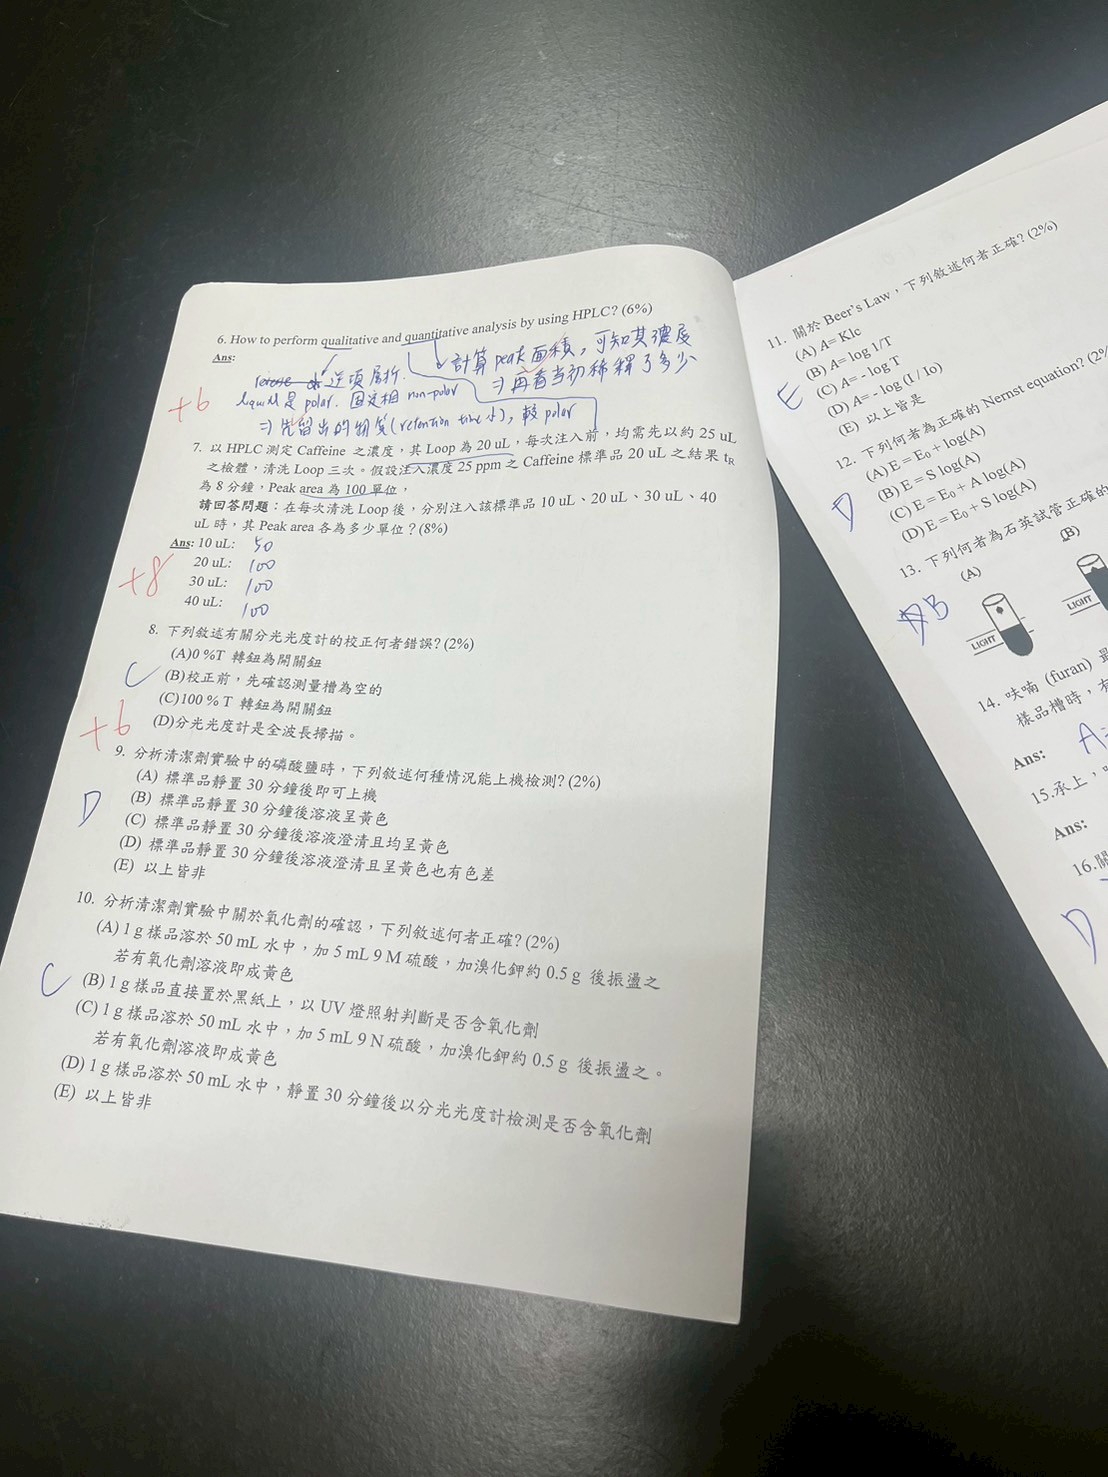 6. How to perform qualitative and quantitative analysis by using HPLC? (6%)
Ans:
逆項層析.
liquid 是 polar. 固定相 non-polar
⇒ 先留出的物質(retention time 小), 較 polar
計算 peak 面積, 可知其濃度
⇒ 再看当初稀釋了多少
+6
7. 以 HPLC 測定 Caffeine 之濃度,其 Loop 為 20 uL,每次注入前,均需先以約 25 uL
之檢體,清洗 Loop 三次。假設注入濃度 25 ppm 之 Caffeine 標準品 20 uL 之結果 tR
為 8 分鐘,Peak area 為 100 單位,
請回答問題:在每次清洗 Loop 後,分別注入該標準品 10 uL、20 uL、30 uL、40
uL 時,其 Peak area 各為多少單位?(8%)
Ans: 10 uL: 50
20 uL: 100
30 uL: 100
40 uL: 100
+8
8. 下列敘述有關分光光度計的校正何者錯誤? (2%)
(A)0 %T 轉鈕為開關鈕
C (B)校正前,先確認測量槽為空的
(C)100 % T 轉鈕為開關鈕
(D)分光光度計是全波長掃描。
+6
9. 分析清潔劑實驗中的磷酸鹽時,下列敘述何種情況能上機檢測? (2%)
(A) 標準品靜置 30 分鐘後即可上機
D (B) 標準品靜置 30 分鐘後溶液呈黃色
(C) 標準品靜置 30 分鐘後溶液澄清且均呈黃色
(D) 標準品靜置 30 分鐘後溶液澄清且呈黃色也有色差
(E) 以上皆非
10. 分析清潔劑實驗中關於氧化劑的確認,下列敘述何者正確? (2%)
(A) 1 g 樣品溶於 50 mL 水中,加 5 mL 9 M 硫酸,加溴化鉀約 0.5 g 後振盪之
若有氧化劑溶液即成黃色
C (B) 1 g 樣品直接置於黑紙上,以 UV 燈照射判斷是否含氧化劑
(C) 1 g 樣品溶於 50 mL 水中,加 5 mL 9 N 硫酸,加溴化鉀約 0.5 g 後振盪之。
若有氧化劑溶液即成黃色
(D) 1 g 樣品溶於 50 mL 水中,靜置 30 分鐘後以分光光度計檢測是否含氧化劑
(E) 以上皆非
11. 關於 Beer's Law,下列敘述何者正確? (2%)
(A) A= Klc
(B) A= log 1/T
E (C) A= - log T
(D) A= - log (I / Io)
(E) 以上皆是
12. 下列何者為正確的 Nernst equation? (2%
(A) E = E0 + log(A)
(B) E = S log(A)
D (C) E = E0 + A log(A)
(D) E = E0 + S log(A)
13. 下列何者為石英試管正確的
(A)
(B)
B
LIGHT
LIGHT
14. 呋喃 (furan)
樣品槽時,
Ans: A=
15.承上,
Ans:
16.關
D